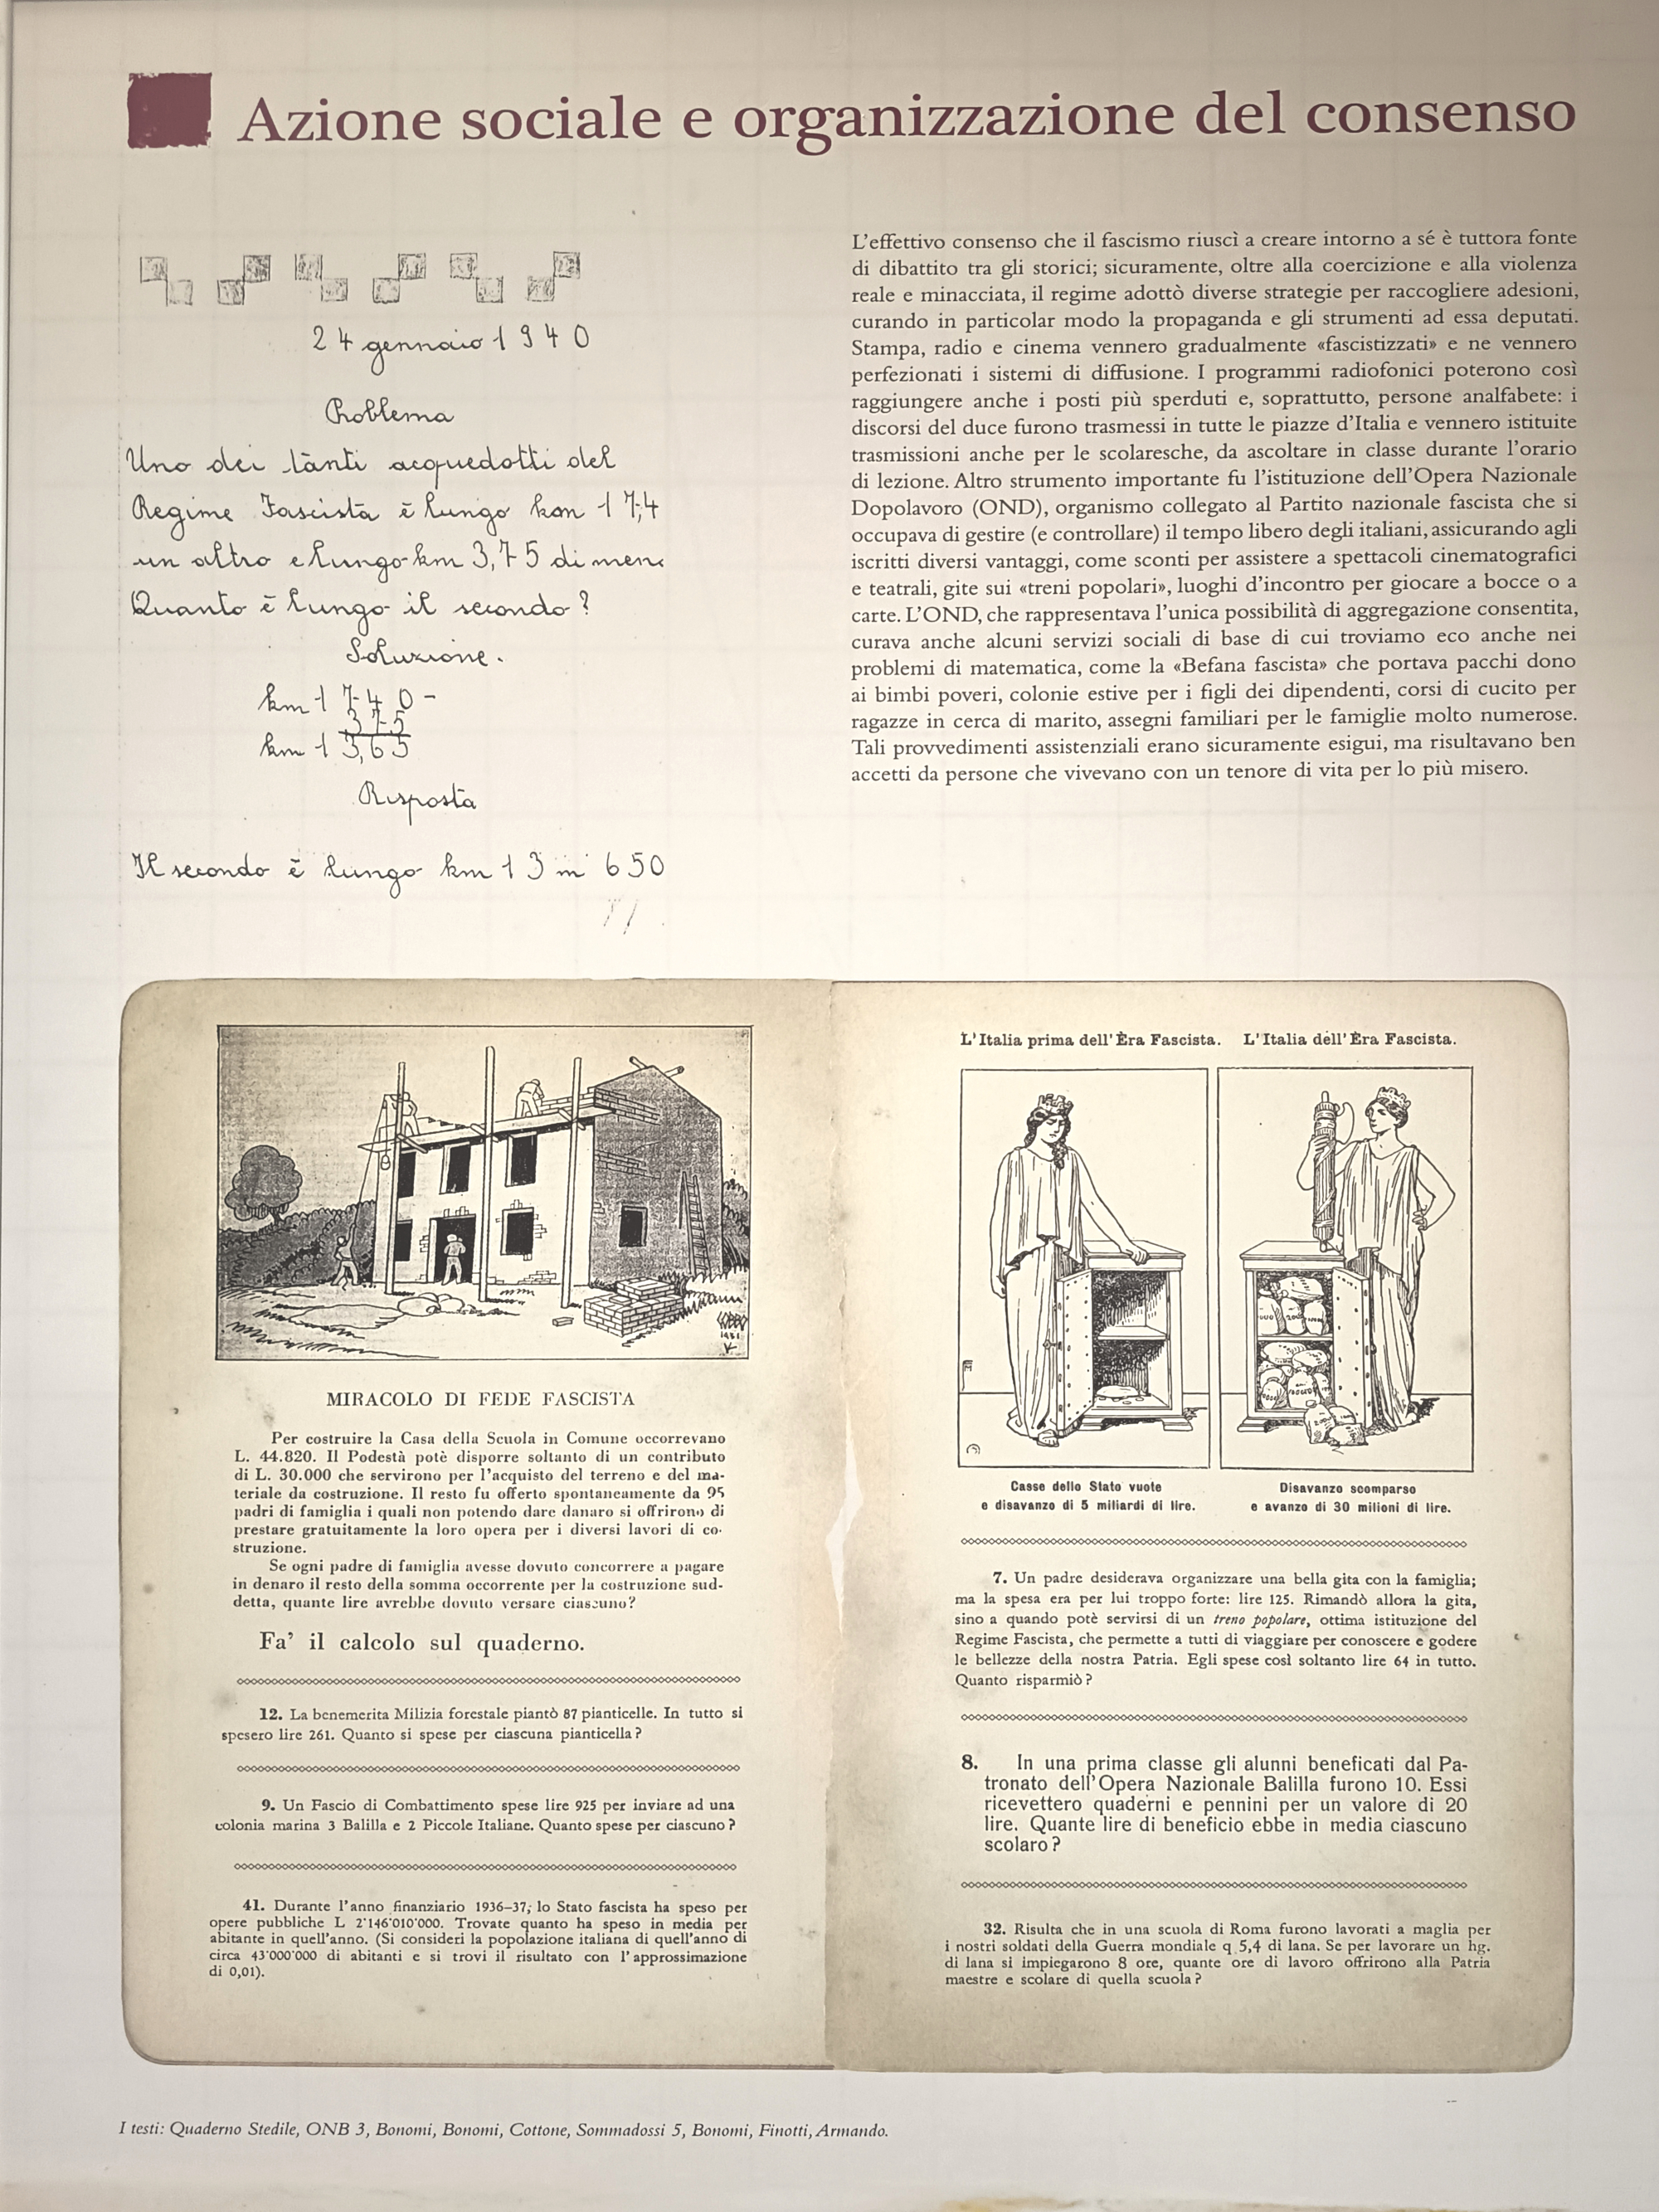 Azione sociale e organizzazione del consenso
24 gennaio 1940
Problema
Uno dei tanti acquedotti del
Regime Fascista è lungo km 17,4
un altro e lungo km 3,75 di meno
Quanto è lungo il secondo?
Soluzione.
km 1740-
375
km 13,65
Risposta
Il secondo è lungo km 13 m 650
L'effettivo consenso che il fascismo riuscì a creare intorno a sé è tuttora fonte
di dibattito tra gli storici; sicuramente, oltre alla coercizione e alla violenza
reale e minacciata, il regime adottò diverse strategie per raccogliere adesioni,
curando in particolar modo la propaganda e gli strumenti ad essa deputati.
Stampa, radio e cinema vennero gradualmente «fascistizzati» e ne vennero
perfezionati i sistemi di diffusione. I programmi radiofonici poterono così
raggiungere anche i posti più sperduti e, soprattutto, persone analfabete: i
discorsi del duce furono trasmessi in tutte le piazze d'Italia e vennero istituite
trasmissioni anche per le scolaresche, da ascoltare in classe durante l'orario
di lezione. Altro strumento importante fu l'istituzione dell'Opera Nazionale
Dopolavoro (OND), organismo collegato al Partito nazionale fascista che si
occupava di gestire (e controllare) il tempo libero degli italiani, assicurando agli
iscritti diversi vantaggi, come sconti per assistere a spettacoli cinematografici
e teatrali, gite sui «treni popolari», luoghi d'incontro per giocare a bocce o a
carte. L'OND, che rappresentava l'unica possibilità di aggregazione consentita,
curava anche alcuni servizi sociali di base di cui troviamo eco anche nei
problemi di matematica, come la «Befana fascista» che portava pacchi dono
ai bimbi poveri, colonie estive per i figli dei dipendenti, corsi di cucito per
ragazze in cerca di marito, assegni familiari per le famiglie molto numerose.
Tali provvedimenti assistenziali erano sicuramente esigui, ma risultavano ben
accetti da persone che vivevano con un tenore di vita per lo più misero.
MIRACOLO DI FEDE FASCISTA
Per costruire la Casa della Scuola in Comune occorrevano
L. 44.820. Il Podestà potè disporre soltanto di un contributo
di L. 30.000 che servirono per l'acquisto del terreno e del ma-
teriale da costruzione. Il resto fu offerto spontaneamente da 95
padri di famiglia i quali non potendo dare danaro si offrirono di
prestare gratuitamente la loro opera per i diversi lavori di co-
struzione.
Se ogni padre di famiglia avesse dovuto concorrere a pagare
in denaro il resto della somma occorrente per la costruzione sud-
detta, quante lire avrebbe dovuto versare ciascuno?
Fa' il calcolo sul quaderno.
12. La benemerita Milizia forestale piantò 87 pianticelle. In tutto si
spesero lire 261. Quanto si spese per ciascuna pianticella?
9. Un Fascio di Combattimento spese lire 925 per inviare ad una
colonia marina 3 Balilla e 2 Piccole Italiane. Quanto spese per ciascuno?
41. Durante l'anno finanziario 1936-37, lo Stato fascista ha speso per
opere pubbliche L 2'146'010'000. Trovate quanto ha speso in media per
abitante in quell'anno. (Si consideri la popolazione italiana di quell'anno di
circa 43'000'000 di abitanti e si trovi il risultato con l'approssimazione
di 0,01).
L'Italia prima dell'Èra Fascista. L'Italia dell'Èra Fascista.
Casse dello Stato vuote
e disavanzo di 5 miliardi di lire.
Disavanzo scomparso
e avanzo di 30 milioni di lire.
7. Un padre desiderava organizzare una bella gita con la famiglia;
ma la spesa era per lui troppo forte: lire 125. Rimandò allora la gita,
sino a quando potè servirsi di un treno popolare, ottima istituzione del
Regime Fascista, che permette a tutti di viaggiare per conoscere e godere
le bellezze della nostra Patria. Egli spese così soltanto lire 64 in tutto.
Quanto risparmiò?
8. In una prima classe gli alunni beneficati dal Pa-
tronato dell'Opera Nazionale Balilla furono 10. Essi
ricevettero quaderni e pennini per un valore di 20
lire. Quante lire di beneficio ebbe in media ciascuno
scolaro?
32. Risulta che in una scuola di Roma furono lavorati a maglia per
i nostri soldati della Guerra mondiale q 5,4 di lana. Se per lavorare un hg.
di lana si impiegarono 8 ore, quante ore di lavoro offrirono alla Patria
maestre e scolare di quella scuola?
I testi: Quaderno Stedile, ONB 3, Bonomi, Bonomi, Cottone, Sommadossi 5, Bonomi, Finotti, Armando.